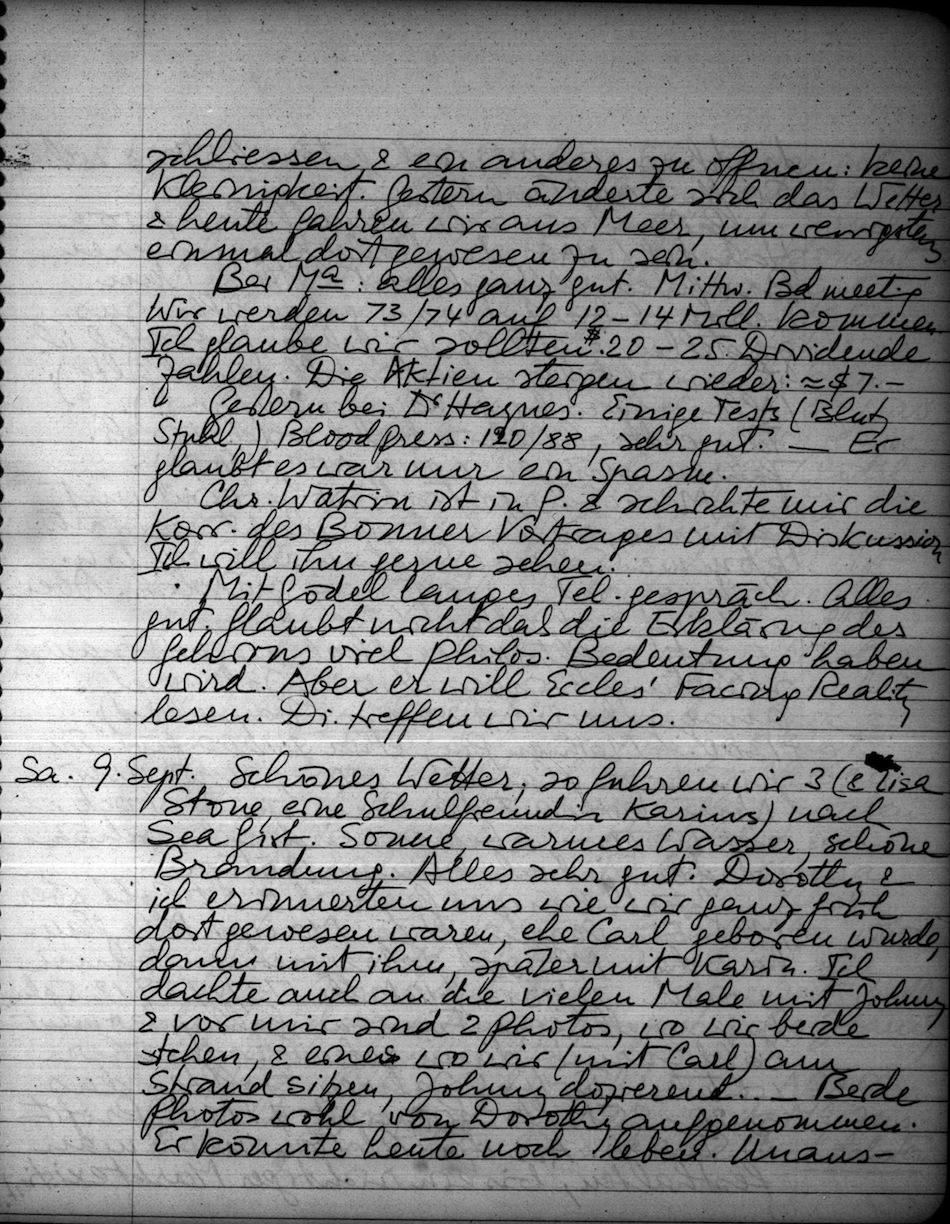 schliessen & ein anderes zu öffnen: keine
Kleinigkeit. Gestern änderte sich das Wetter
& heute fahren wir ans Meer, um wenigstens
einmal dort gewesen zu sein.
Bei Ma: alles ganz gut. Mittw. Bd meetig
Wir werden 73/74 auf 12–14 Mill. kommen
Ich glaube wir sollten $.20–25 Dividende
zahlen. Die Aktien steigen wieder: ≈$7.–
Gestern bei Dr Haynes. Einige Tests (Blut,
Stuhl,) Bloodpress: 120/88, sehr gut. — Er
glaubt es war nur ein Spasm.
Chr. Watrin ist in P. & schickte mir die
Korr. des Bonner Vortrages mit Diskussion
Ich will ihn gerne sehen.
Mit Gödel langes Tel. gespräch. Alles
gut. Glaubt nicht das die Erklärung des
Gehirns viel philos. Bedeutung haben
wird. Aber er will Eccles' Facing Reality
lesen. Di. treffen wir uns.
Sa. 9. Sept. Schönes Wetter, so fuhren wir 3 (& Lisa
Stone, eine Schulfreundin Karins) nach
Sea Girt. Sonne, warmes Wasser, schöne
Brandung. Alles sehr gut. Dorothy &
ich erinnerten uns wie wir ganz früh
dort gewesen waren, ehe Carl geboren wurde,
dann mit ihm, später mit Karin. Ich
dachte auch an die vielen Male mit Johnny
& vor mir sind 2 Photos, wo wir beide
stehen, & eines wo wir (mit Carl) am
Strand sitzen, Johnny dozierend. — Beide
Photos wohl von Dorothy aufgenommen.
Er könnte heute noch leben. Unaus-